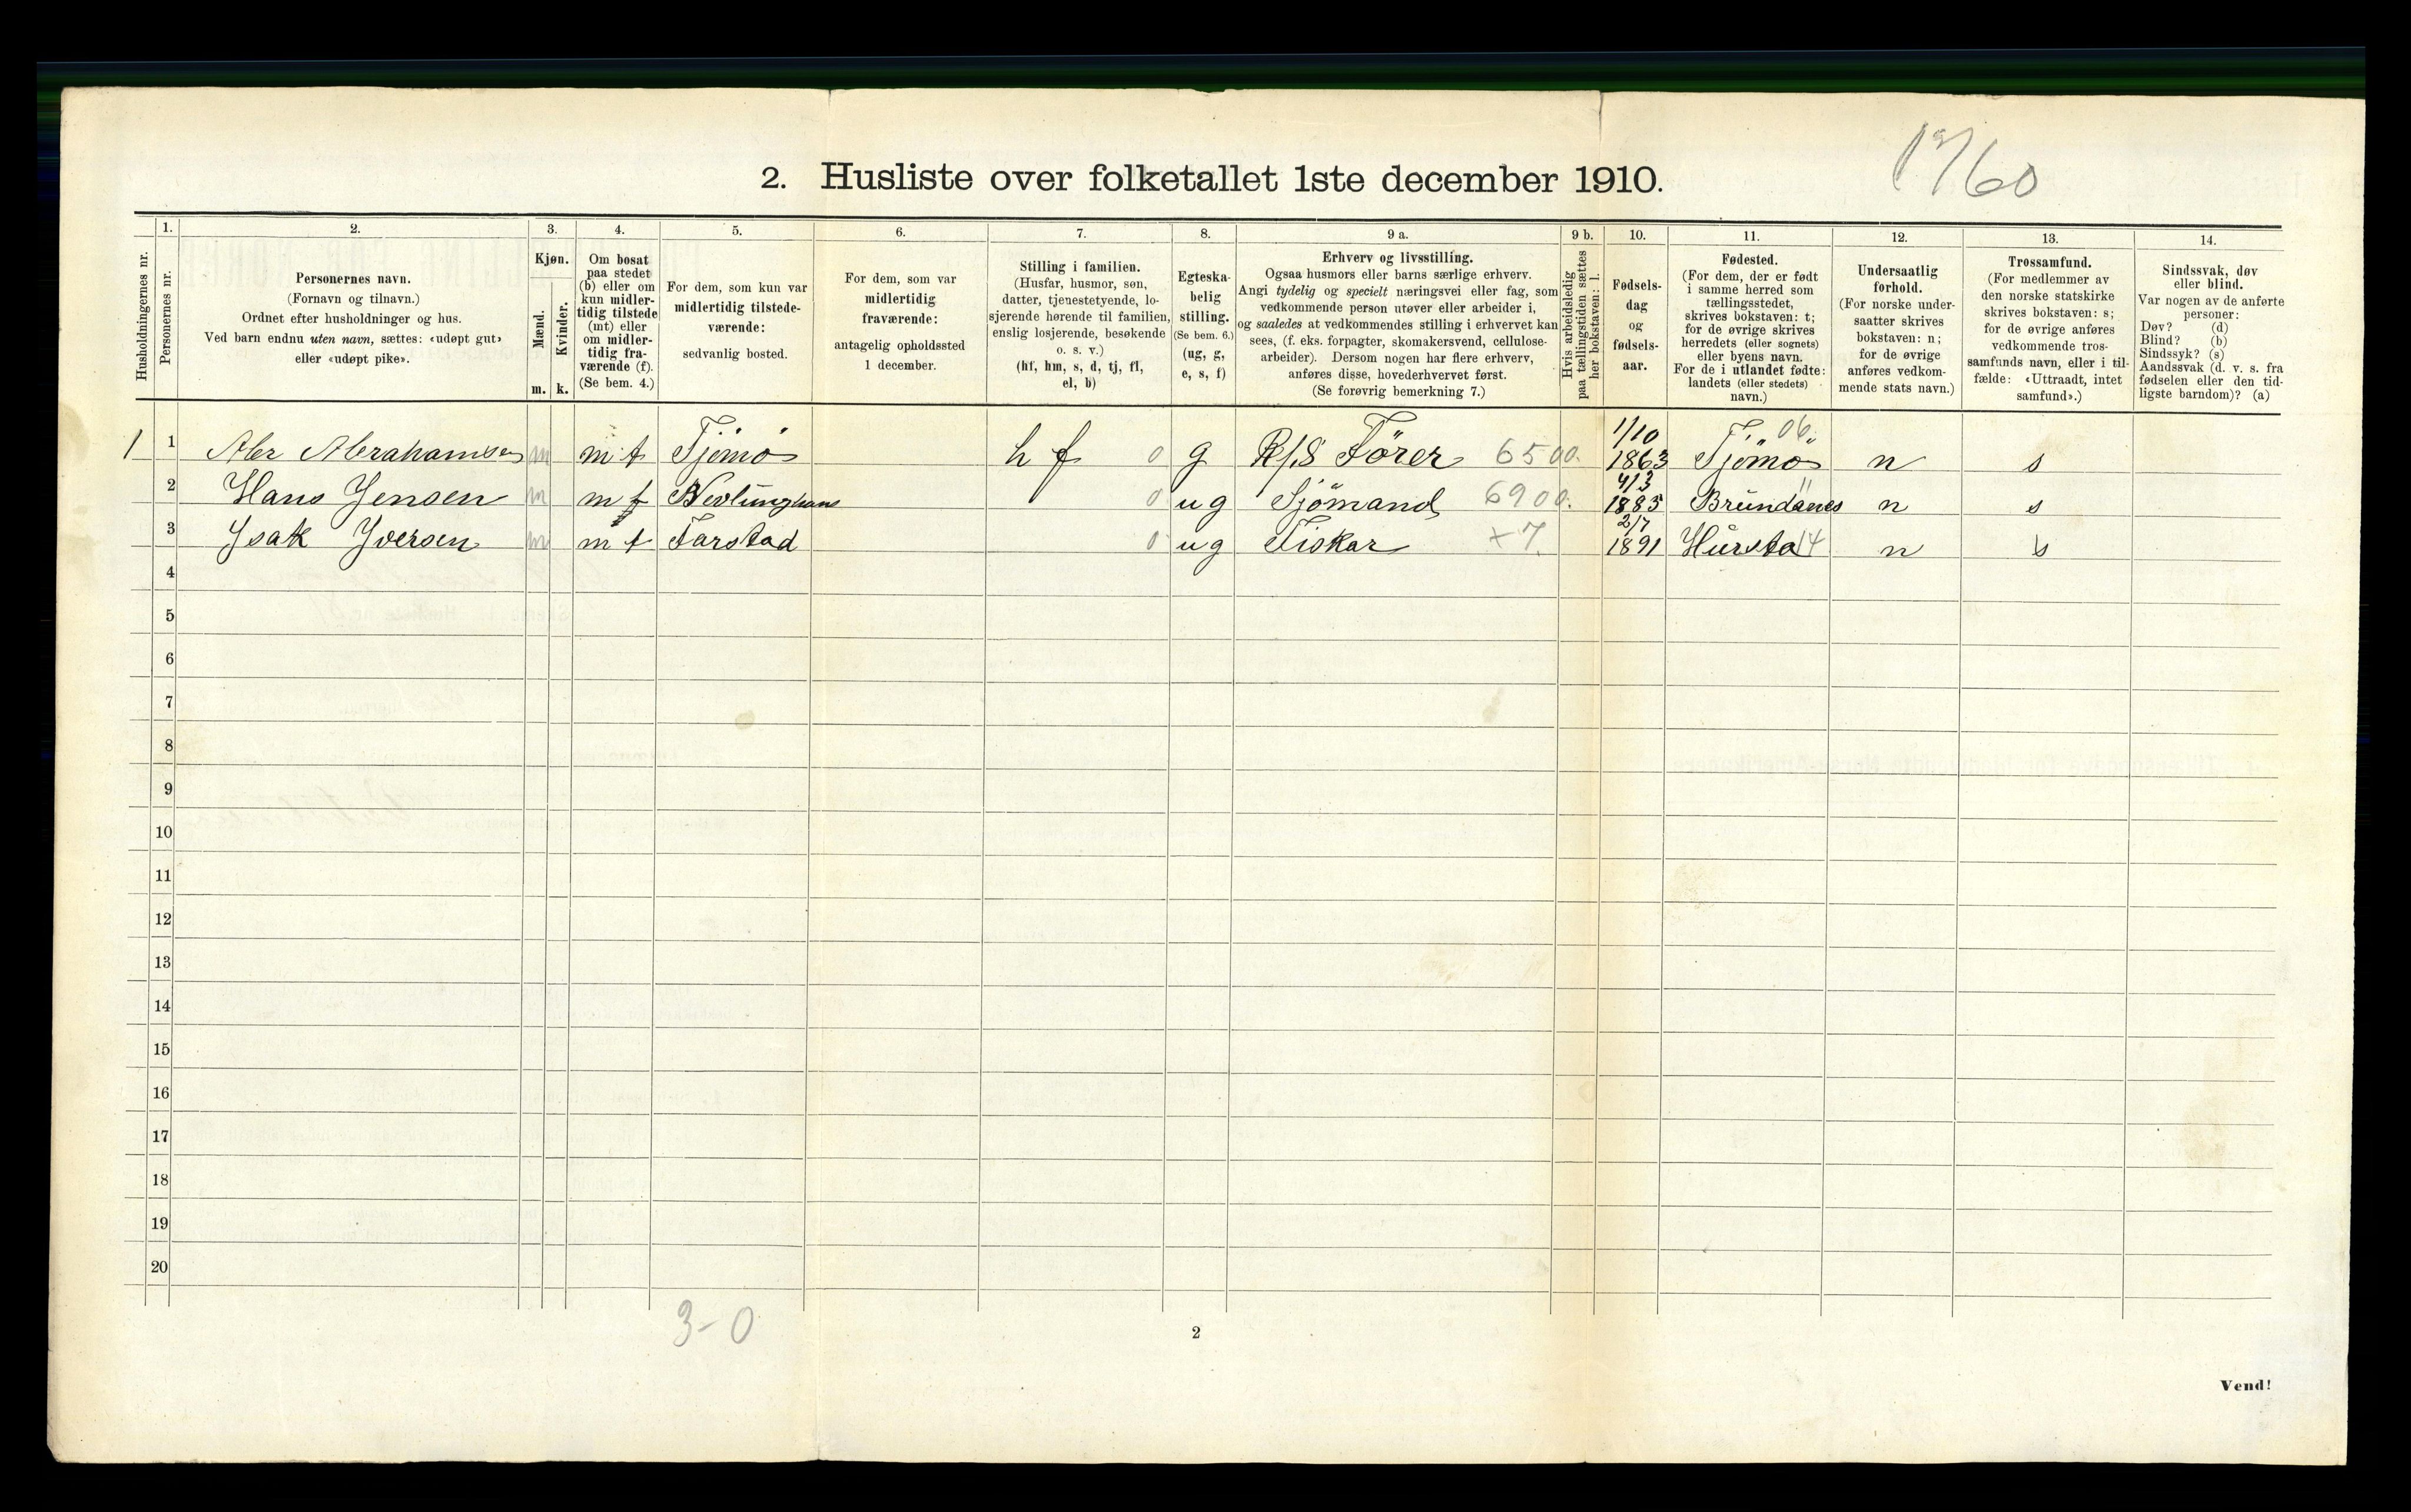 1760
2. Husliste over folketallet 1ste december 1910.
Husholdningernes nr.
1. Personernes nr.
2. Personernes navn.
(Fornavn og tilnavn.)
Ordnet efter husholdninger og hus.
Ved barn endnu uten navn, sættes: «udøpt gut»
eller «udøpt pike».
3. Kjøn.
Mænd. m.
Kvinder. k.
4. Om bosat
paa stedet
(b) eller om
kun midler-
tidig tilstede
(mt) eller
om midler-
tidig fra-
værende (f).
(Se bem. 4.)
5. For dem, som kun var
midlertidig tilstede-
værende:
sedvanlig bosted.
6. For dem, som var
midlertidig
fraværende:
antagelig opholdssted
1 december.
7. Stilling i familien.
(Husfar, husmor, søn,
datter, tjenestetyende, lo-
sjerende hørende til familien,
enslig losjerende, besøkende
o. s. v.)
(hf, hm, s, d, tj, fl,
el, b)
8. Egteska-
belig
stilling.
(Se bem. 6.)
(ug, g,
e, s, f)
9 a. Erhverv og livsstilling.
Ogsaa husmors eller barns særlige erhverv.
Angi tydelig og specielt næringsvei eller fag, som
vedkommende person utøver eller arbeider i,
og saaledes at vedkommendes stilling i erhvervet kan
sees, (f. eks. forpagter, skomakersvend, cellulose-
arbeider). Dersom nogen har flere erhverv,
anføres disse, hovederhvervet først.
(Se forøvrig bemerkning 7.)
9 b. Hvis arbeidsledig
paa tællingstiden sættes
her bokstaven: l.
10. Fødsels-
dag
og
fødsels-
aar.
11. Fødested.
(For dem, der er født
i samme herred som
tællingsstedet,
skrives bokstaven: t;
for de øvrige skrives
herredets (eller sognets)
eller byens navn.
For de i utlandet fødte:
landets (eller stedets)
navn.)
12. Undersaatlig
forhold.
(For norske under-
saatter skrives
bokstaven: n;
for de øvrige
anføres vedkom-
mende stats navn.)
13. Trossamfund.
(For medlemmer av
den norske statskirke
skrives bokstaven: s;
for de øvrige anføres
vedkommende tros-
samfunds navn, eller i til-
fælde: «Uttraadt, intet
samfund».)
14. Sindssvak, døv
eller blind.
Var nogen av de anførte
personer:
Døv? (d)
Blind? (b)
Sindssyk? (s)
Aandssvak (d. v. s. fra
fødselen eller den tid-
ligste barndom)? (a)
1 1 Abr Abrahamsen m mt Tjömö hf 0 g R/S Förer 6500. 1/10 1863 Tjömö 06. n s
2 Hans Jensen m mt Nevlunghavn 0 ug Sjömand 6900. 4/3 1885 Brundanes n s
3 Isak Iversen m mt Farstad 0 ug Fiskar x7. 2/7 1891 Hustad 14 n s
4
5
6
7
8
9
10
11
12
13
14
15
16
17
18
19
20
3-0
2
Vend!